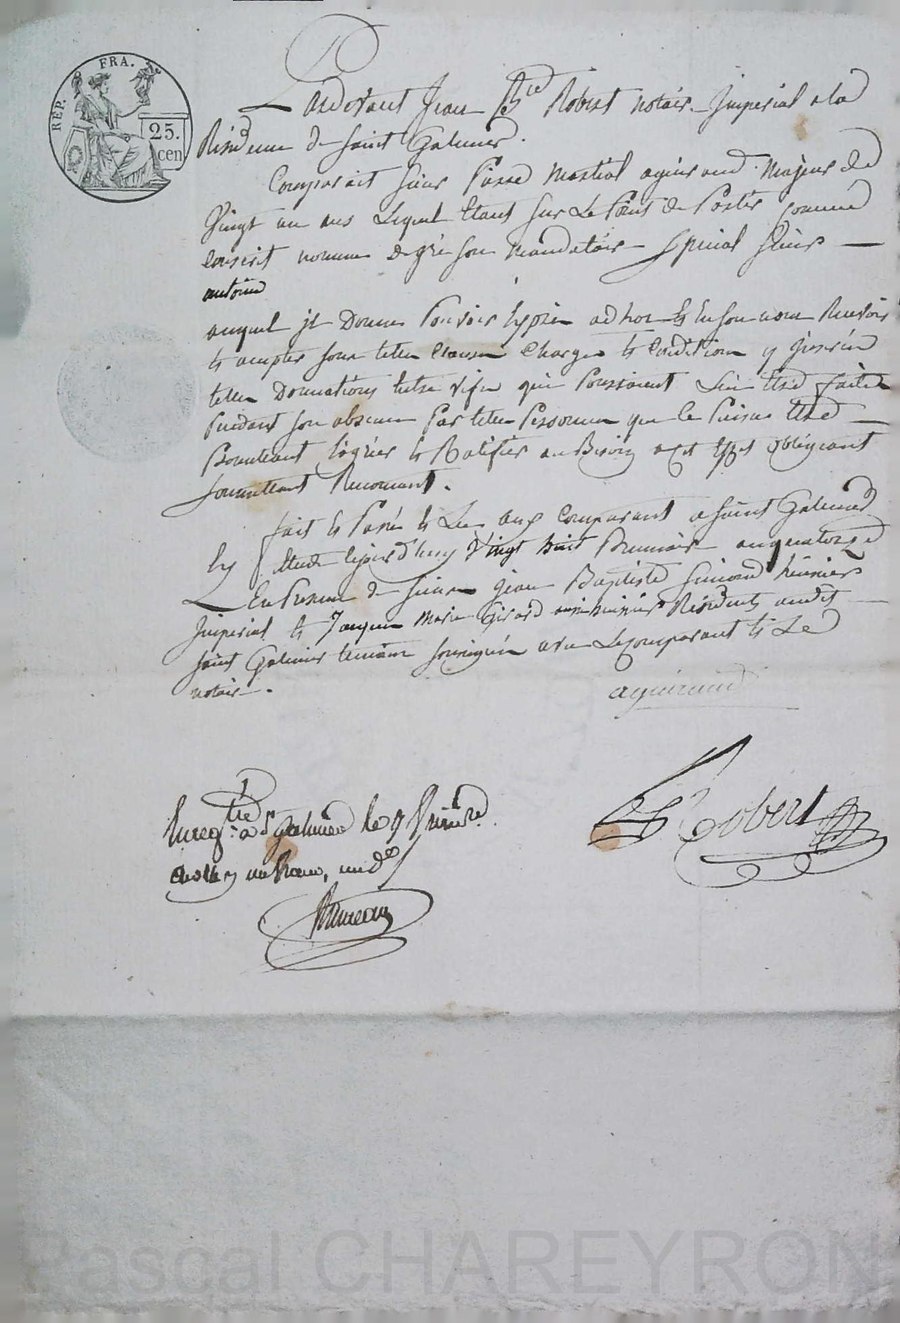 REP. FRA.
25.
cen
Pardevant Jean Bte Robert notaire Imperial a la
Résidence de Saint Galmier.
Comparait Sieur Pierre Martial aguiraud Majeur de
Vingt un ans Lequel Etant Sur Le Point de Partir comme
Conscrit nomme de gré son mandataire Special Sieur
antoine
auquel il Donne Pouvoir Exprès ad hoc En Son nom Recevoir
et accepter sous telles Clauses Charges et Condition y
telles Donnations Entre vifs qui Pourroient Lui être faites
Pendant son absence Par telles Personnes que ce Puisse être
et Ratifier au Besoin obligeant
Soumettant Renonçant.
fait et Passé et Lu aux Comparant a Saint Galmier
En Etude Cejourd'huy Vingt huit Brumaire an quatorze
En Presence de Sieurs Jean Baptiste Simond huissier
Imperial et Jacques Marie Girard Résidents audit
Saint Galmier temoins soussignés avec Le comparant et Le
notaire.
aguiraud
Robert
Enregtré a St galmier le 9 frimaire
un franc,